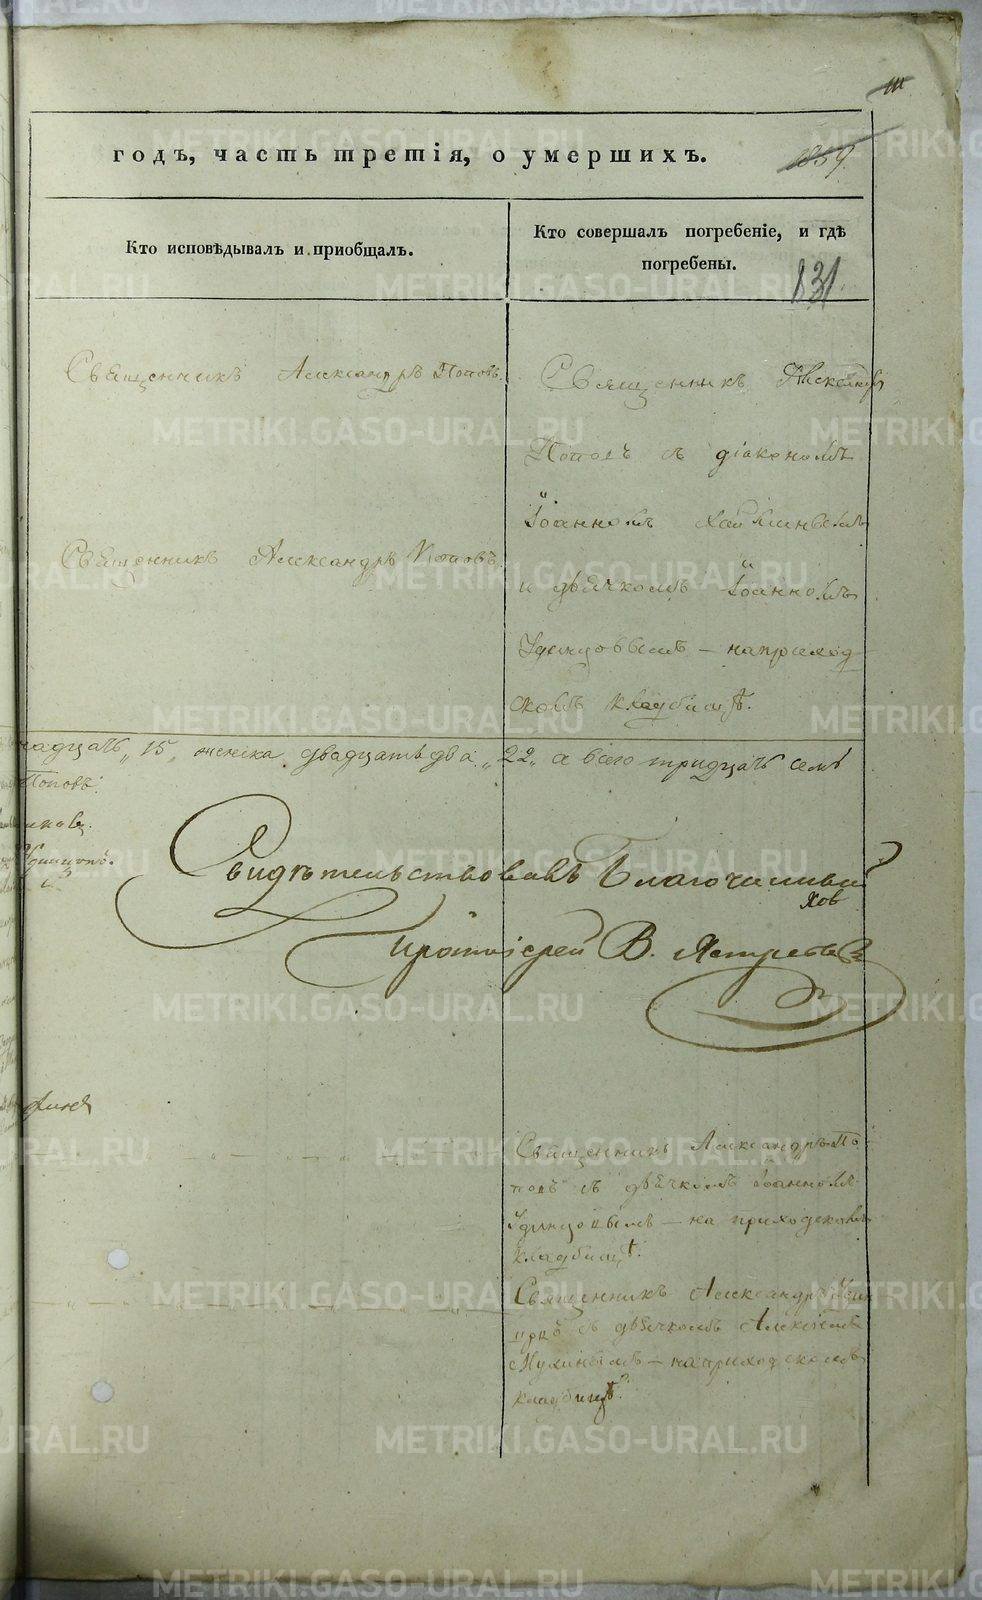 111
годъ, часть третія, о умершихъ.
1859.
Кто исповѣдывалъ и приобщалъ.
Кто совершалъ погребеніе, и гдѣ
погребены.
131.
Священникъ Александръ Поповъ.
Священникъ Александръ
Поповъ съ діакономъ
Іоанномъ
Священникъ Александръ Поповъ.
и дьячкомъ Іоанномъ
Удинцовымъ — на приход
скомъ кладбищѣ.
надцать „15„ женска двадцать два „22„ а всего тридцать семь
Поповъ.
Удинцовъ.
Свидѣтельствовалъ Благочинный
Протоіерей В. Ястребовъ
Священникъ Александръ По-
повъ съ дьячкомъ Іоанномъ
Удинцовымъ — на приходскомъ
кладбищѣ.
Священникъ Александръ
съ дьячкомъ Алексѣемъ
Мухинымъ — на приходскомъ
кладбищѣ.
METRIKI.GASO-URAL.RU